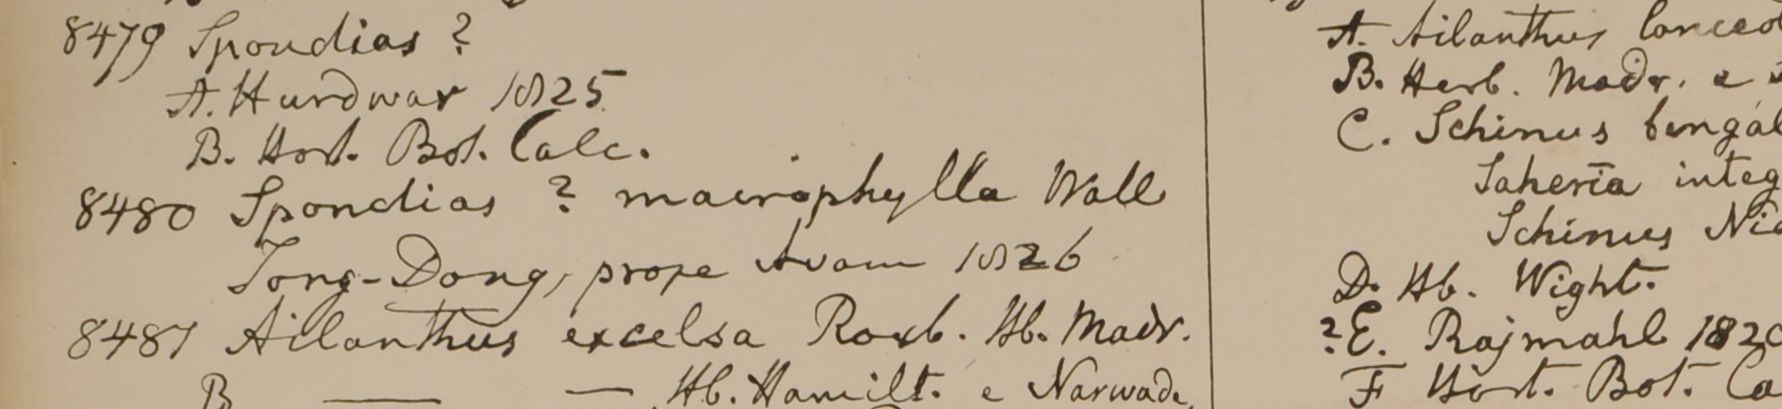 8479 Spondias ?
A. Hurdwar 1825
B. Hort. Bot. Calc.
8480 Spondias ? macrophylla Wall
Tong-Dong, prope Avam 1826
8481 Ailanthus excelsa Roxb. Hb. Madr.
B — — Hb. Hamilt. e Narwada
A. Ailanthus lanceo
B. Herb. Madr. e
C. Schinus bengal
Saheria integ
Schinus Nia
D. Hb. Wight.
? E. Rajmahl 1820
F Hort. Bot. Ca